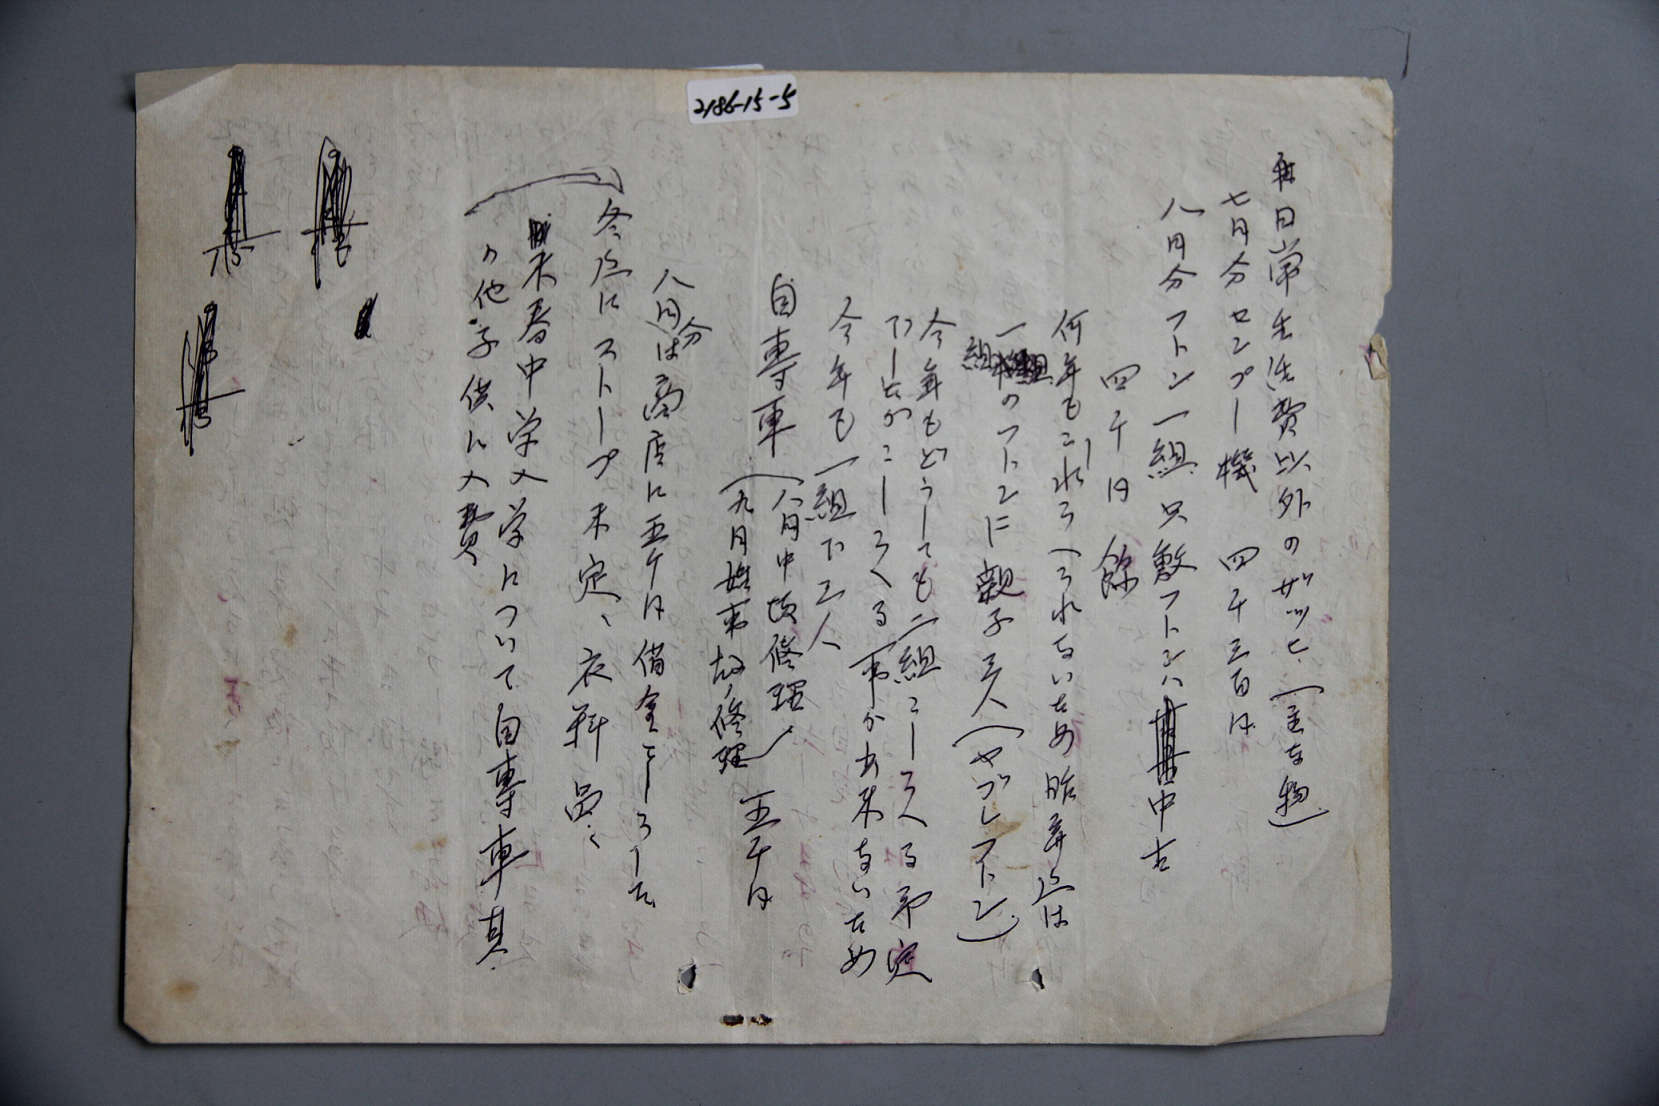 2186-15-5
毎日常生活費以外のザッピ(主な物)
七月分センプー機 四千三百円
八月分フトン一組只敷フトンハ中古
四千円餘
何年もこしれらへられないため昨年迄は
一組のフトンに親子三人(ヤブレフトン)
今年もどうしても二組こしらへる予定
でしたがこしらへる事が出来ないため
今年も一組で三人
自專車(八月中頃修理)
(九月始事故修理 五千円
八月分は商店に五千円借金こしらした
冬迄にストーブ未定、衣料品、
来春中学入学について自專車其
の他子供に入費